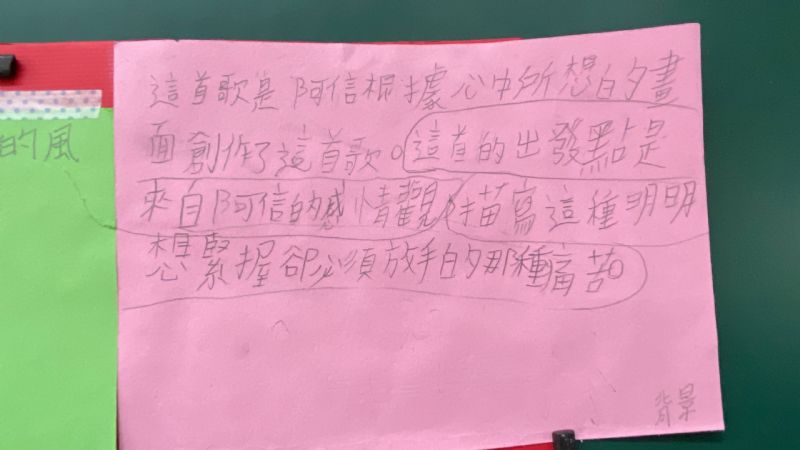 的風
這首歌是阿信根據心中所想的畫
面創作了這首歌。這首的出發點是
來自阿信的感情觀,描寫這種明明
想緊握卻必須放手的那種痛苦。
背景